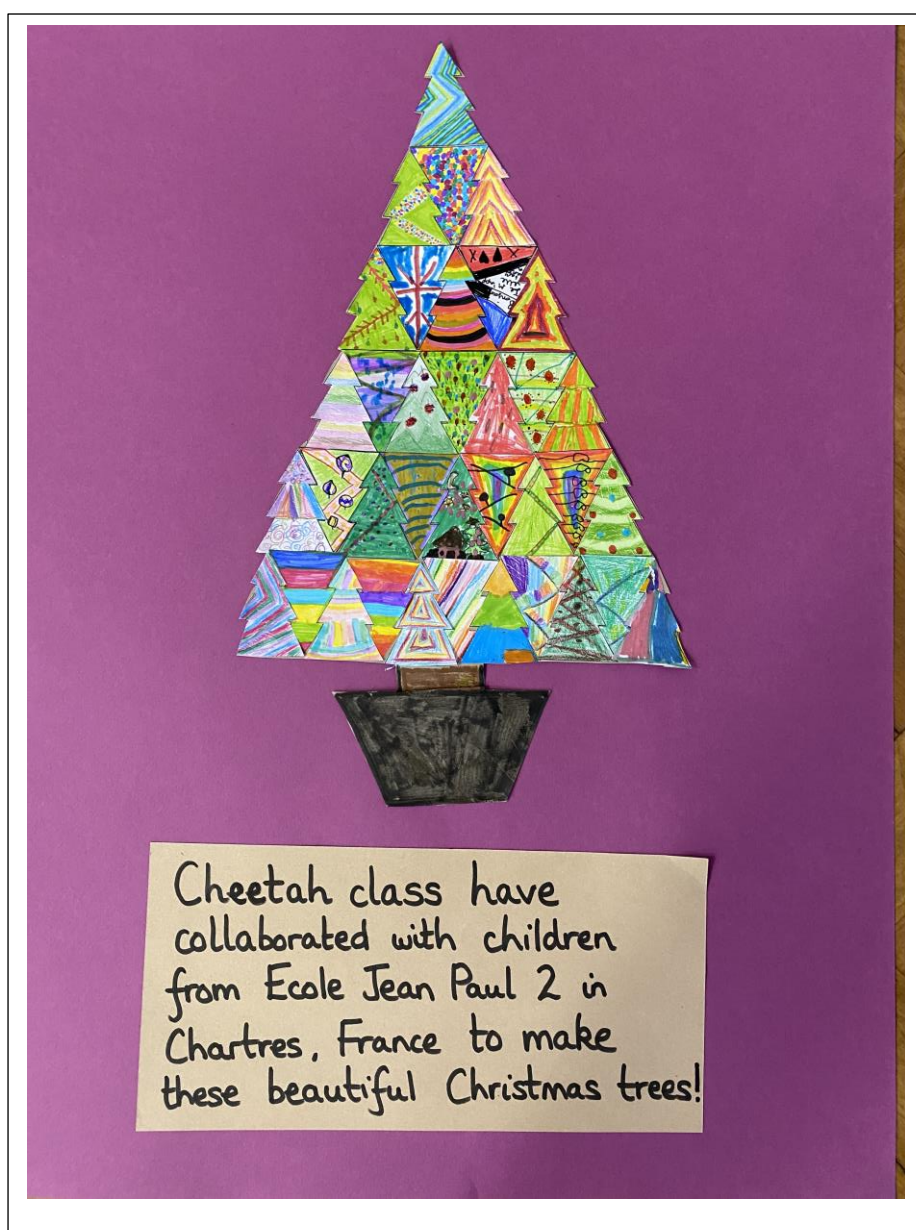 Cheetah class have
collaborated with children
from Ecole Jean Paul 2 in
Chartres, France to make
these beautiful Christmas trees!